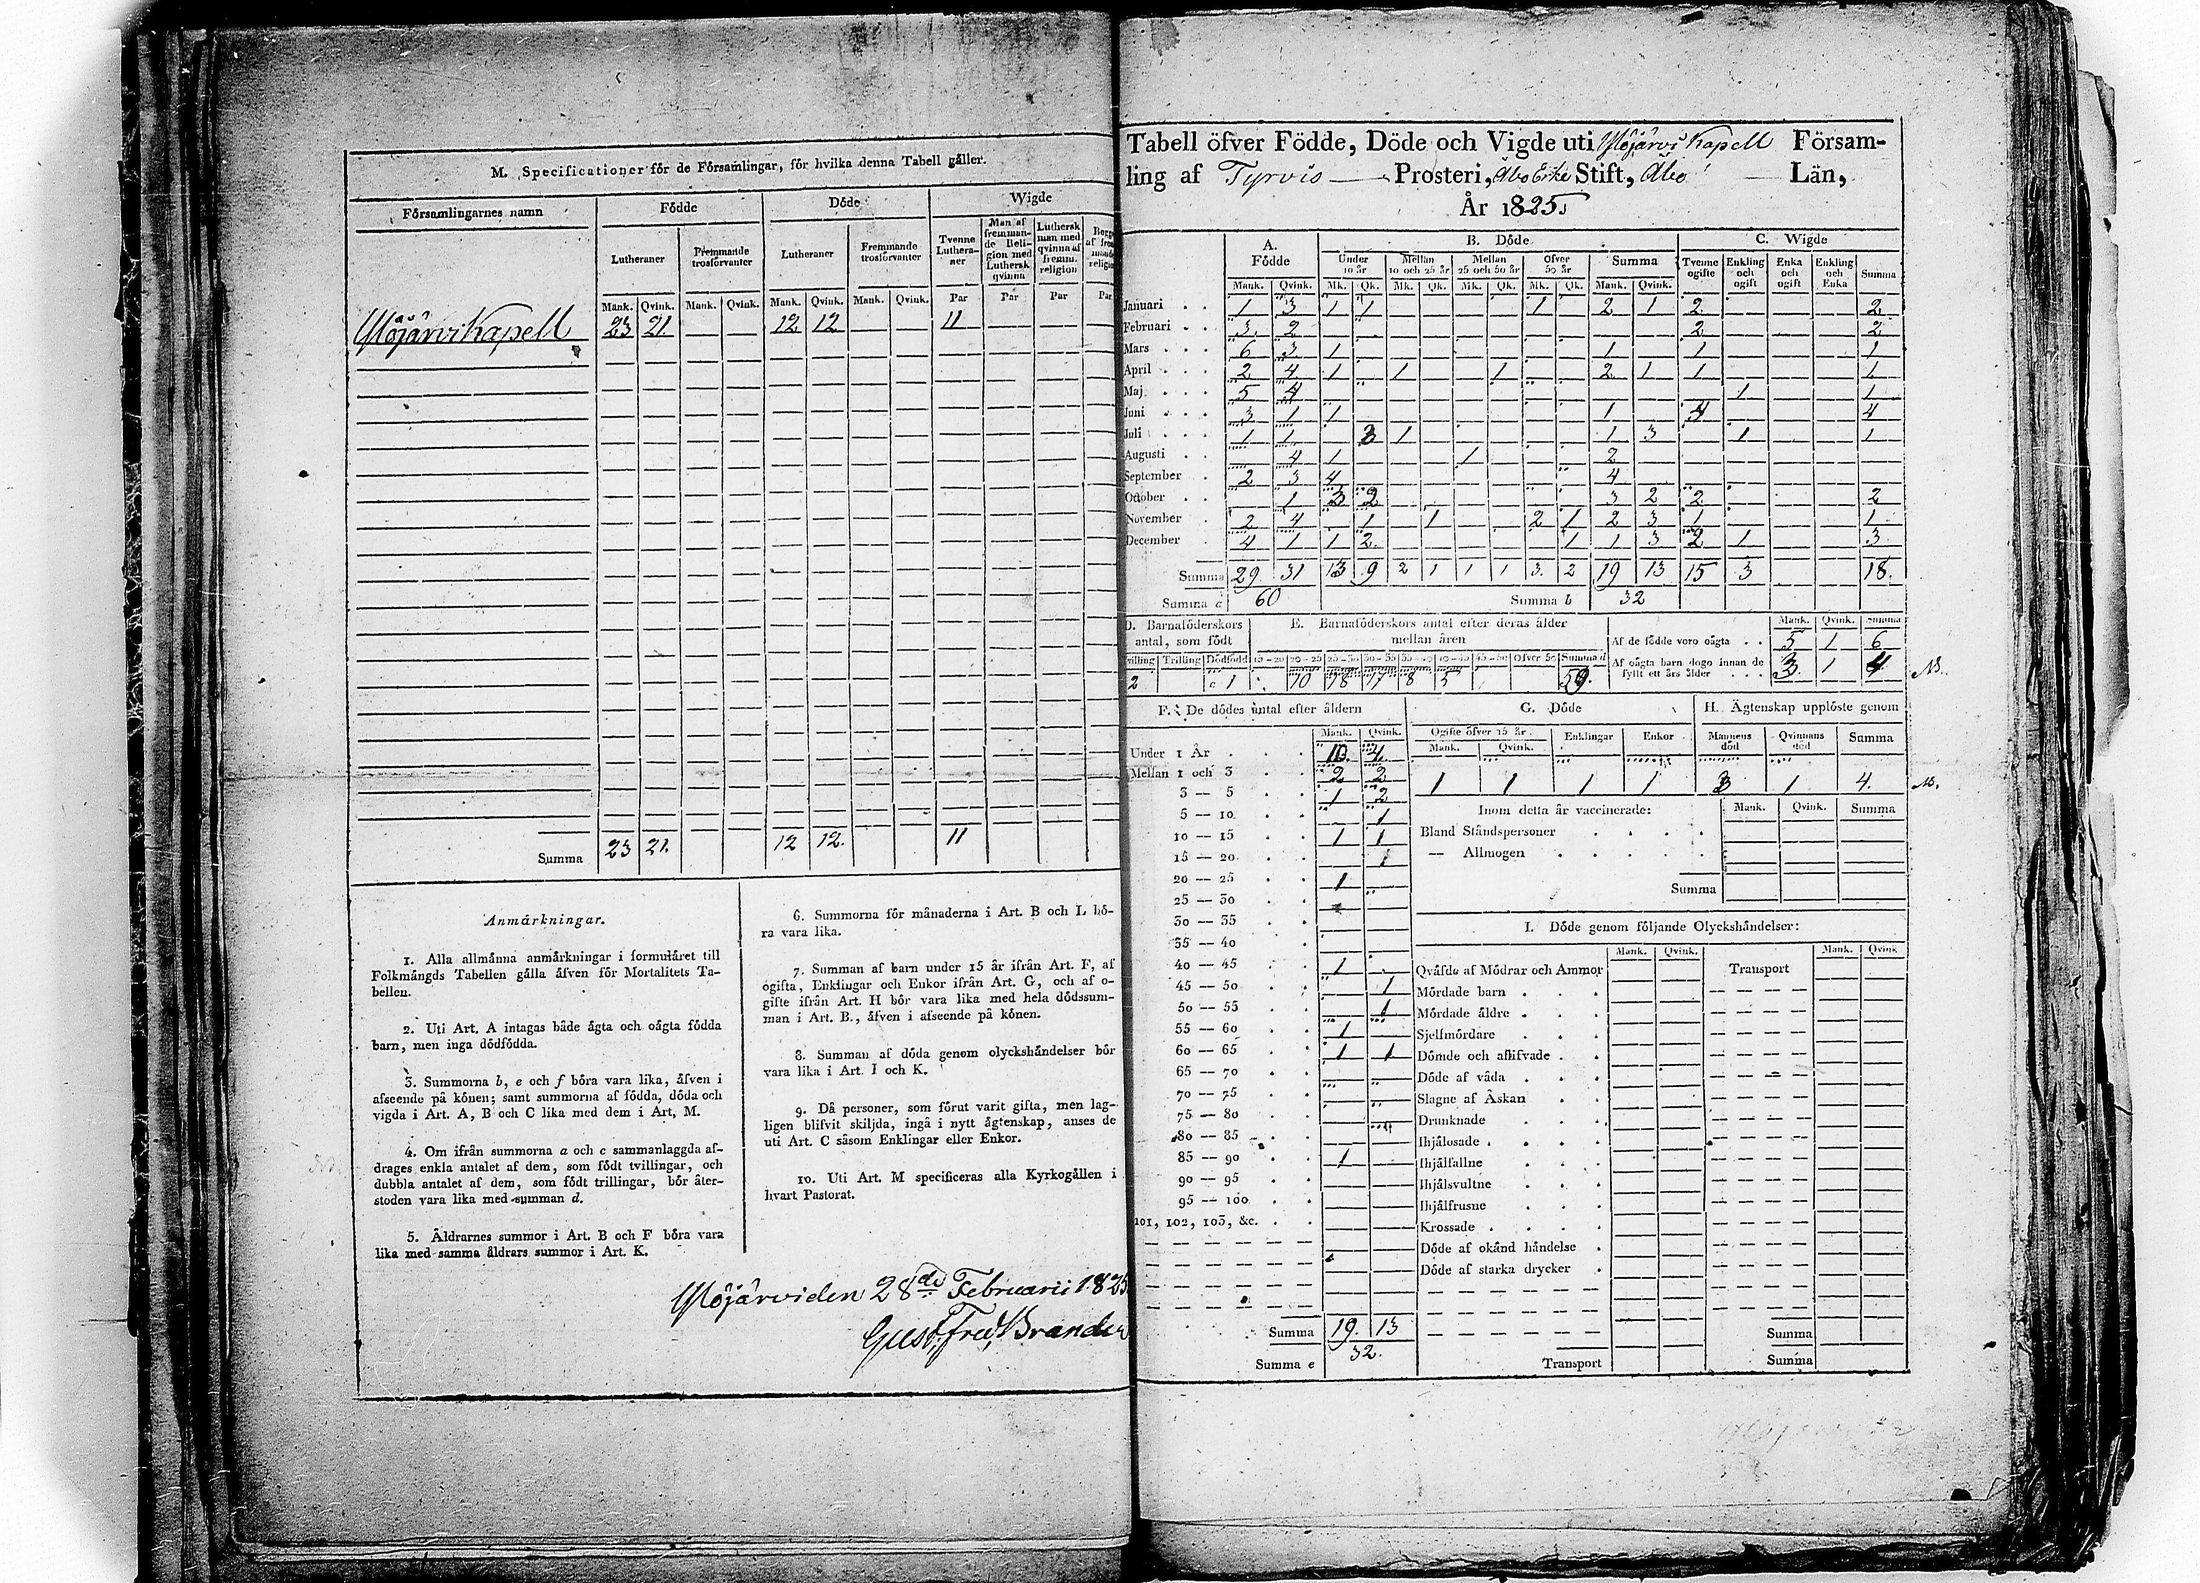 M. Specificationer för de Församlingar, för hvilka denna Tabell gäller.
Församlingarnes namn | Födde | Döde | Wigde
Lutheraner | Fremmande trosförvanter | Lutheraner | Fremmande trosförvanter | Tvenne Lutheraner | Man af fremmande Religion med Luthersk qvinna | Luthersk man med qvinna af fremm. religion
Mank. | Qvink. | Mank. | Qvink. | Mank. | Qvink. | Mank. | Qvink. | Par | Par | Par | Par
Mojärvi Kapell | 23 | 21. | 12 | 12 | 11
Summa | 23 | 21. | 12 | 12. | 11
Anmärkningar.
1. Alla allmänna anmärkningar i formuläret till
Folkmängds Tabellen gälla äfven för Mortalitets Ta-
bellen.
2. Uti Art. A intagas både ägta och oägta födda
barn, men inga dödfödda.
3. Summorna b, e och f böra vara lika, äfven i
afseende på könen; samt summorna af födda, döda och
vigda i Art. A, B och C lika med dem i Art, M.
4. Om ifrån summorna a och c sammanlaggda af-
drages enkla antalet af dem, som födt tvillingar, och
dubbla antalet af dem, som födt trillingar, bör åter-
stoden vara lika med summan d.
5. Åldrarnes summor i Art. B och F böra vara
lika med samma åldrars summor i Art. K.
6. Summorna för månaderna i Art. B och L bö-
ra vara lika.
7. Summan af barn under 15 år ifrån Art. F, af
ogifta, Enklingar och Enkor ifrån Art. G, och af o-
gifte ifrån Art. H bör vara lika med hela dödssum-
man i Art. B., äfven i afseende på könen.
8. Summan af döda genom olyckshändelser bör
vara lika i Art. I och K.
9. Då personer, som förut varit gifta, men lag-
ligen blifvit skiljda, ingå i nytt ägtenskap, anses de
uti Art. C såsom Enklingar eller Enkor.
10. Uti Art. M specificeras alla Kyrkogällen i
hvart Pastorat.
Mojärvi den 28de Februarii 1825
Gust. Fred. Brander
Tabell öfver Födde, Döde och Vigde uti Mojärvi Kapell Försam-
ling af Tyrvis Prosteri, Åbo Erke Stift, Åbo Län,
År 1825.
A. Födde | B. Döde | C. Wigde
Under 10 år | Mellan 10 och 25 år | Mellan 25 och 50 år | Öfver 50 år | Summa | Tvenne ogifte | Enkling och ogift | Enka och ogift | Enkling och Enka | Summa
Mank. | Qvink. | Mk. | Qk. | Mk. | Qk. | Mk. | Qk. | Mk. | Qk. | Mank. | Qvink.
Januari | 1 | 3 | 1 | 1 | 1 | 2 | 1 | 2 | 2
Februari | 3 | 2 | 2 | 2
Mars | 6 | 3 | 1 | 1 | 1 | 1
April | 2 | 4 | 1 | 1 | 1 | 2 | 1 | 1 | 1
Maj | 5 | 4 | 1 | 1
Juni | 3 | 1 | 1 | 1 | 4 | 4
Juli | 1 | 1 | 3 | 1 | 1 | 3 | 1 | 1
Augusti | 4 | 1 | 1 | 2
September | 2 | 3 | 4 | 4
October | 1 | 3 | 2 | 3 | 2 | 2 | 2
November | 2 | 4 | 1 | 1 | 2 | 1 | 2 | 3 | 1 | 1
December | 4 | 1 | 1 | 2 | 1 | 1 | 3 | 2 | 1 | 3
Summa | 29 | 31 | 13 | 9 | 2 | 1 | 1 | 1 | 3 | 2 | 19 | 13 | 15 | 3 | 18.
Summa a | 60 | Summa b | 32
D. Barnaföderskors antal, som födt | E. Barnaföderskors antal efter deras ålder mellan åren | Mank. | Qvink. | Summa
Af de födde voro oägta | 5 | 1 | 6
Af oägta barn dogo innan de fyllt ett års ålder | 3 | 1 | 4 | NB.
Trilling | Dödfödd | 15-20 | 20-25 | 25-30 | 30-35 | 35-40 | 40-45 | 45-50 | Öfver 50 | Summa d
2 | c 1 | 10 | 18 | 17 | 8 | 5 | 59.
F. De dödes antal efter åldern
Mank. | Qvink.
Under 1 År | 10 | 4
Mellan 1 och 3 | 2 | 2
3 — 5 | 1 | 2
5 — 10 | 1
10 — 15 | 1 | 1
15 — 20 | 1
20 — 25 | 1
25 — 30
30 — 35
35 — 40
40 — 45 | 1
45 — 50 | 1
50 — 55 | 1
55 — 60 | 1
60 — 65 | 1 | 1
65 — 70
70 — 75
75 — 80
80 — 85
85 — 90 | 1
90 — 95
95 — 100
101, 102, 103, &c.
Summa | 19. | 13
Summa e | 32.
G. Döde | H. Ägtenskap upplöste genom
Ogifte öfver 15 år | Enklingar | Enkor | Mannens död | Qvinnans död | Summa
Mank. | Qvink.
1 | 1 | 1 | 1 | 3 | 1 | 4. | NB.
Inom detta år vaccinerade: | Mank. | Qvink. | Summa
Bland Ståndspersoner
— Allmogen
Summa
I. Döde genom följande Olyckshändelser:
Mank. | Qvink. | Mank. | Qvink
Qväfde af Mödrar och Ammor | Transport
Mördade barn
Mördade äldre
Sjelfmördare
Dömde och aflifvade
Döde af våda
Slagne af Åskan
Drunknade
Ihjälosade
Ihjälfallne
Ihjälsvultne
Ihjälfrusne
Krossade
Döde af okänd händelse
Döde af starka drycker
Summa
Transport | Summa